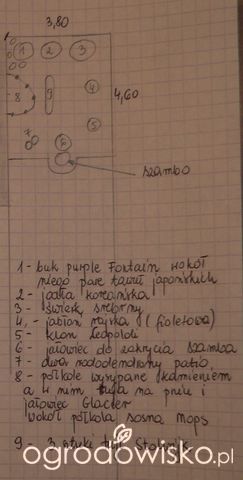 3,80
1
2
3
8
9
4
4,60
5
7
6
szambo
1 - buk purple Fontain wokół
niego parę tawuł japońskich
2 - jodła koreańska
3 - świerk srebrny
4, - jabłoń rajska (fioletowa)
5 - klon Leopoldi
6 - jałowiec do zakrycia szamba
7 - dwa rododendrony patio
8 - półkole wysypane kamieniem
a w nim na pniu i
jałowiec Glacier
wokół półkola sosna Mops
9 - 3 sztuki
ogrodowisko.pl